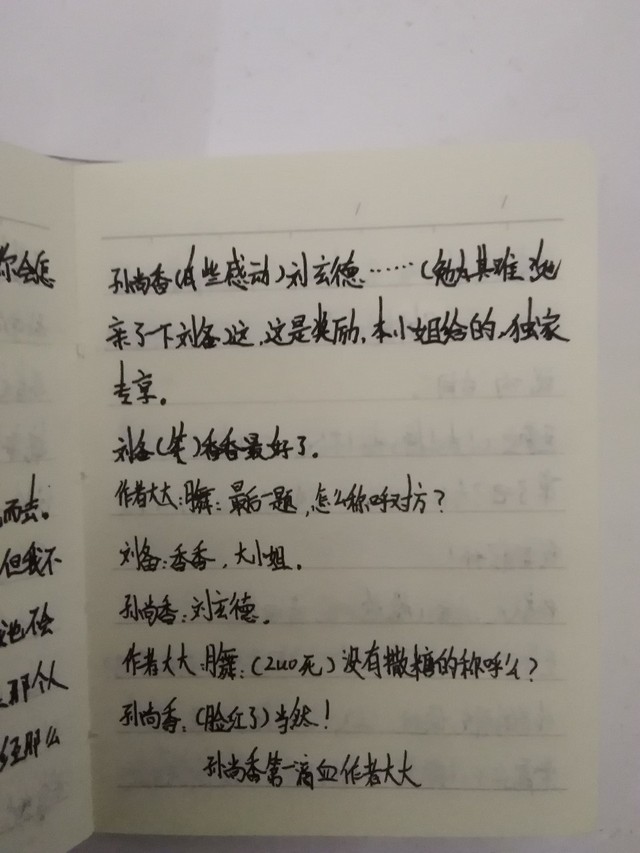 你会怎
而去。
但我不
她不会
那个人
经那么
孙尚香(有些感动)刘玄德……(勉为其难地
亲了下刘备)这,这是奖励,本小姐给的,独家
专享。
刘备(笑)香香最好了。
作者大大:月舞:最后一题,怎么称呼对方?
刘备:香香,大小姐。
孙尚香:刘玄德。
作者大大:月舞:(zuo死)没有撒糖的称呼么?
孙尚香:(脸红了)当然!
孙尚香第一滴血作者大大